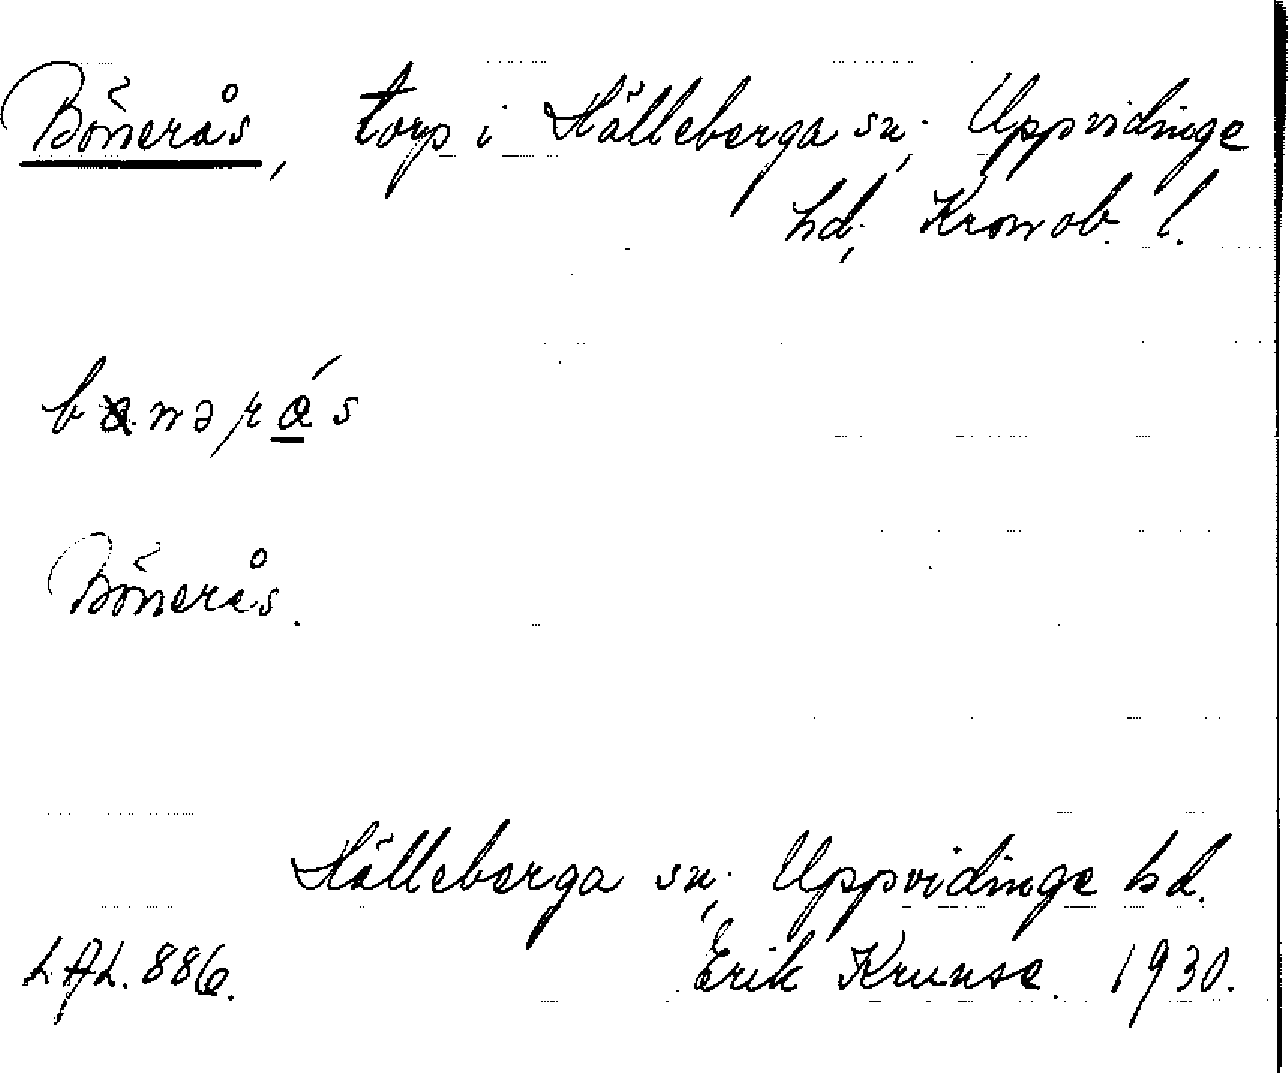 Bönerås, torp i Hälleberga sn, Uppvidinge
hd, Kronob. l.
Bönerås.
Hälleberga sn, Uppvidinge hd.
LAL. 886. Erik Krunse 1930.